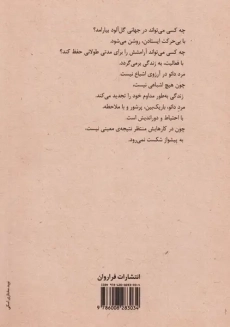 چه کسی می‌تواند در جهانی گل‌آلود بیارامد؟
با بی‌حرکت ایستادن، روشن می‌شود
چه کسی می‌تواند آرامشش را برای مدتی طولانی حفظ کند؟
با فعالیت، به زندگی برمی‌گردد.
مرد دائو در آرزوی اشباع نیست
چون هیچ اشباعی نیست.
زندگی به‌طور مداوم خود را تجدید می‌کند.
مرد دائو، باریک‌بین، پرشور و با ملاحظه،
با احتیاط و دوراندیش است.
چون در کارهایش منتظر نتیجه‌ی معینی نیست،
به پیشواز شکست نمی‌رود.
انتشارات فراروان
9786008283034